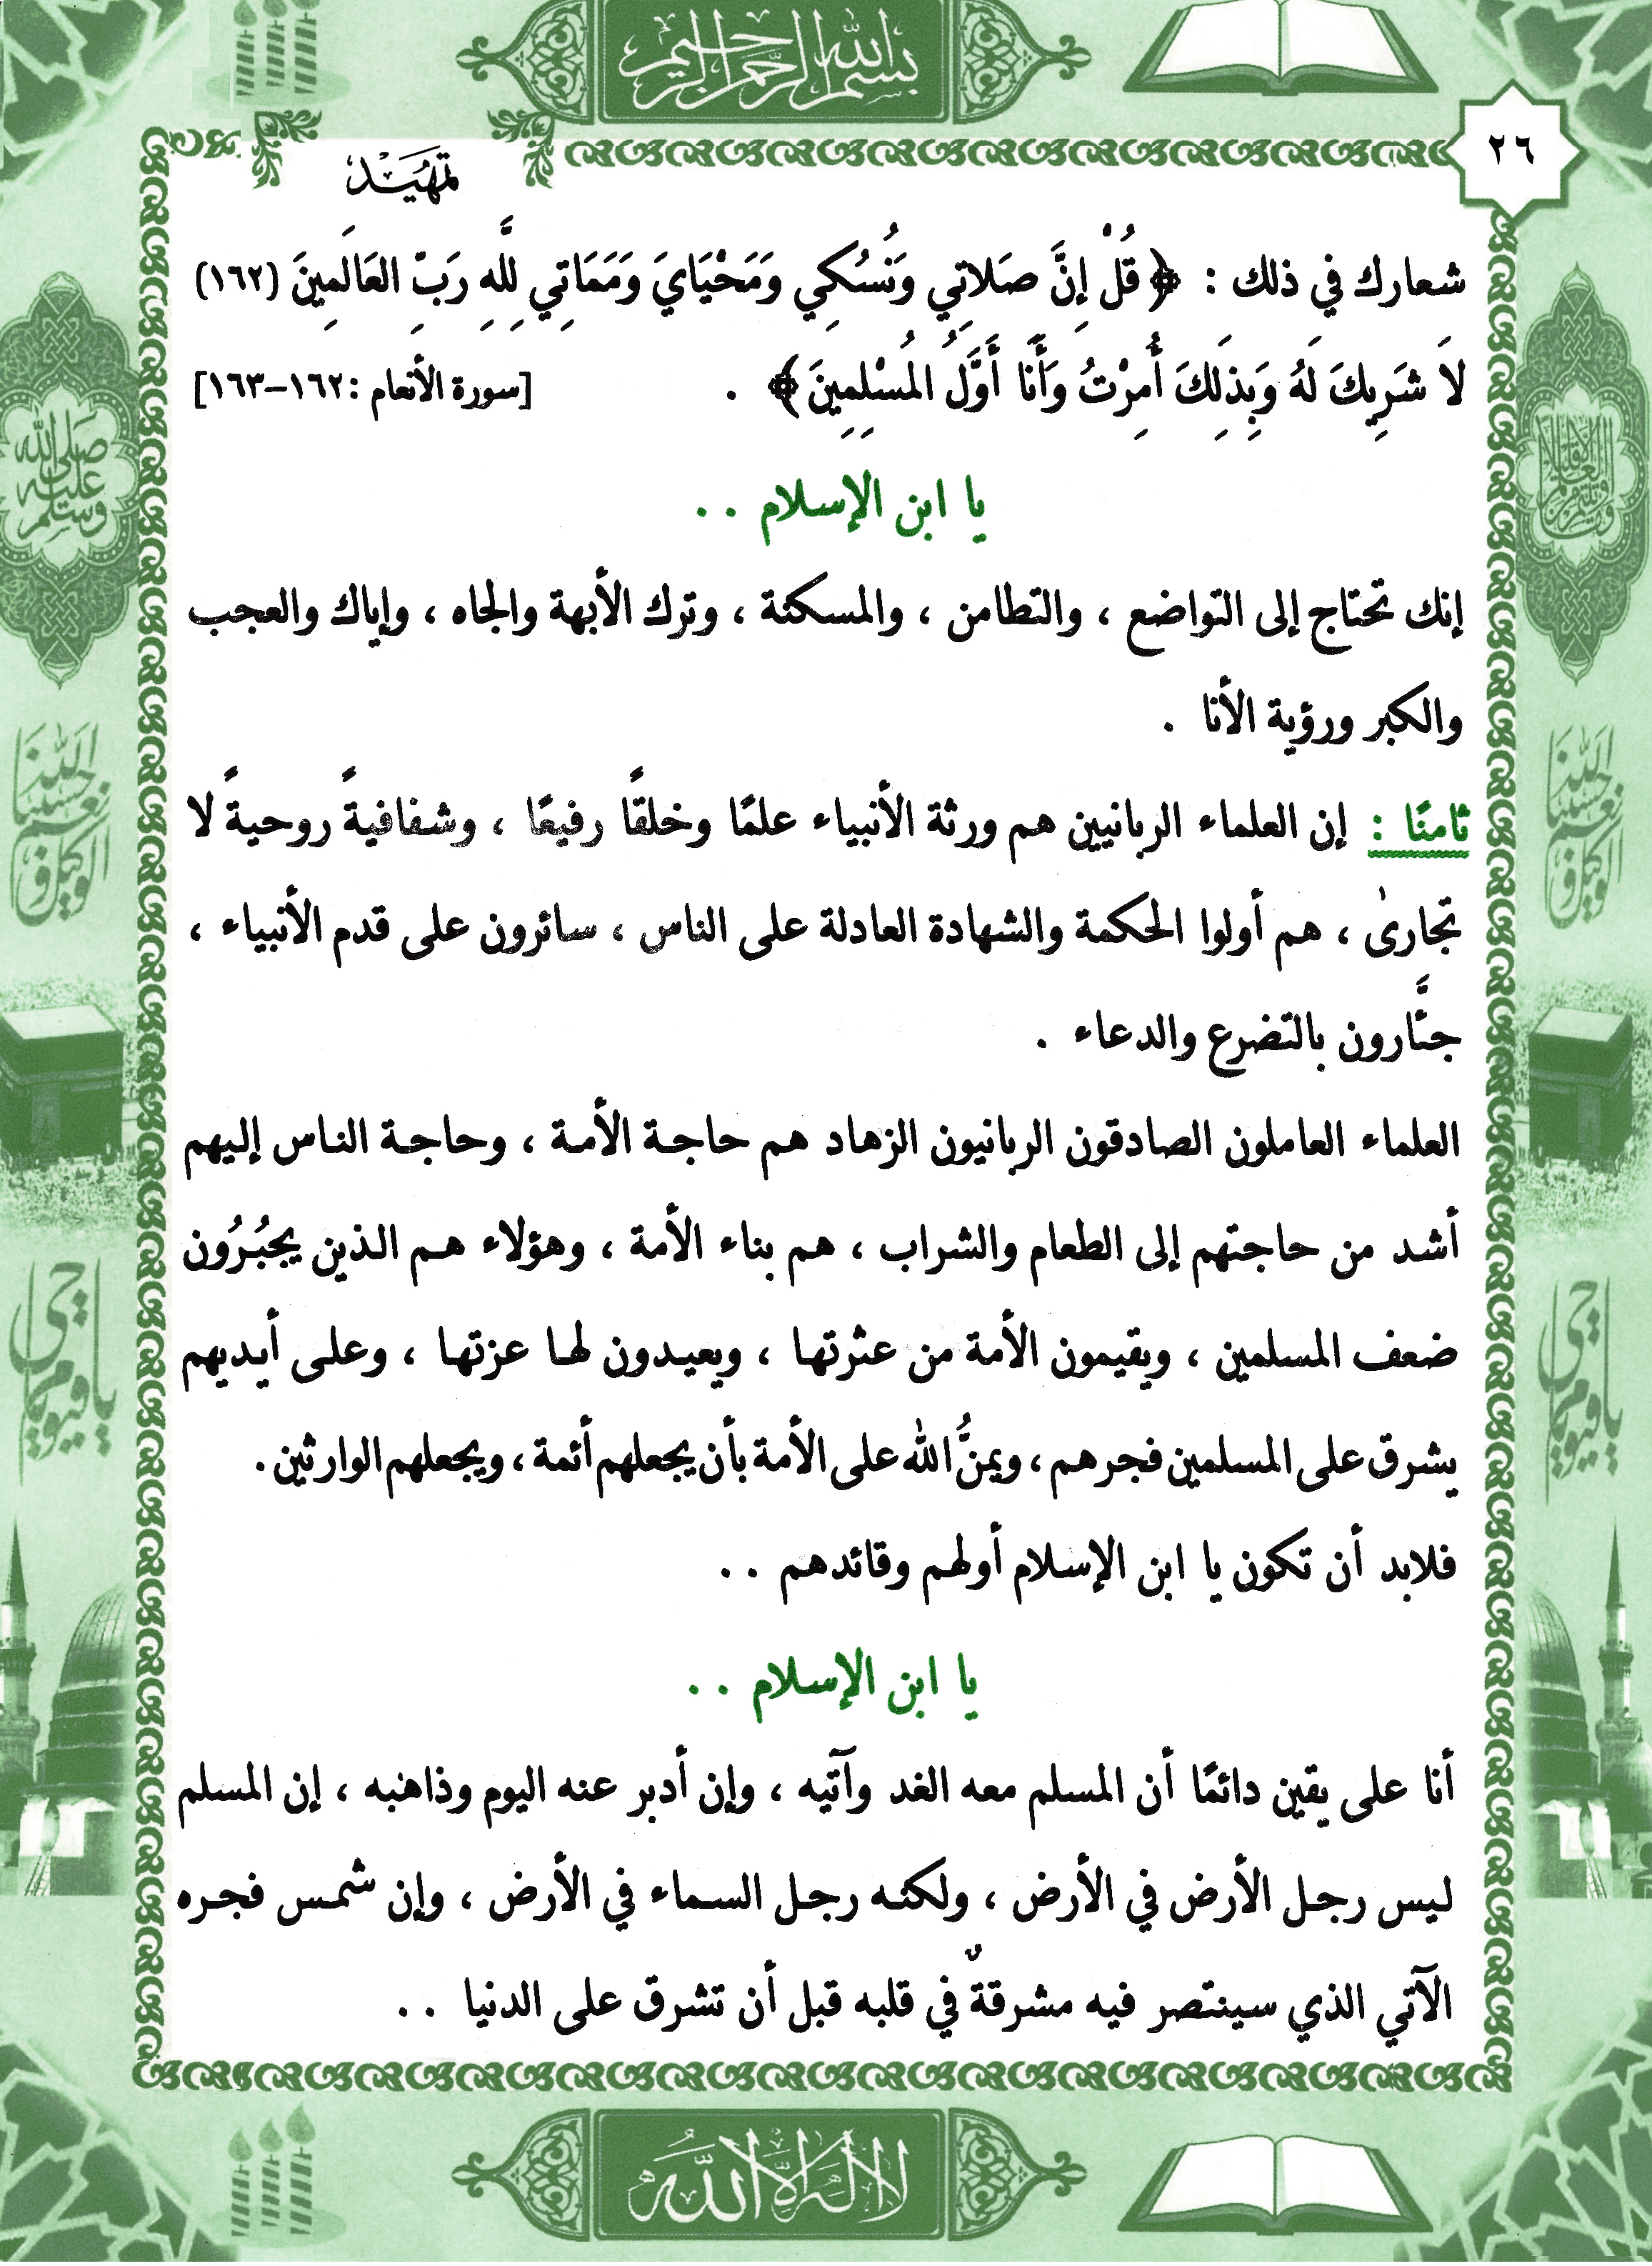 بسم الله الرحمن الرحيم
٢٦
تمهيد
شعارك في ذلك : ﴿ قُلْ إِنَّ صَلاتِي وَنُسُكِي وَمَحْيَايَ وَمَمَاتِي لِلَّهِ رَبِّ العَالَمِينَ (١٦٢)
لاَ شَرِيكَ لَهُ وَبِذَلِكَ أُمِرْتُ وَأَنَا أَوَّلُ المُسْلِمِينَ ﴾ . [سورة الأنعام :١٦٢-١٦٣]
يا ابن الإسلام . .
إنك تحتاج إلى التواضع ، والتطامن ، والمسكنة ، وترك الأبهة والجاه ، وإياك والعجب
والكبر ورؤية الأنا .
ثامنًا : إن العلماء الربانيين هم ورثة الأنبياء علمًا وخلقًا رفيعًا ، وشفافيةً روحيةً لا
تجارىٰ ، هم أولوا الحكمة والشهادة العادلة على الناس ، سائرون على قدم الأنبياء ،
جئَّارون بالتضرع والدعاء .
العلماء العاملون الصادقون الربانيون الزهاد هم حاجة الأمة ، وحاجة الناس إليهم
أشد من حاجتهم إلى الطعام والشراب ، هم بناء الأمة ، وهؤلاء هم الذين يجبُرُون
ضعف المسلمين ، ويقيمون الأمة من عثرتها ، ويعيدون لها عزتها ، وعلى أيديهم
يشرق على المسلمين فجرهم ، ويمنُّ الله على الأمة بأن يجعلهم أئمة ، ويجعلهم الوارثين .
فلابد أن تكون يا ابن الإسلام أولهم وقائدهم . .
يا ابن الإسلام . .
أنا على يقين دائمًا أن المسلم معه الغد وآتيه ، وإن أدبر عنه اليوم وذاهبه ، إن المسلم
ليس رجل الأرض في الأرض ، ولكنه رجل السماء في الأرض ، وإن شمس فجره
الآتي الذي سينتصر فيه مشرقةٌ في قلبه قبل أن تشرق على الدنيا . .
صلى الله عليه وسلم
حسبنا الله ونعم الوكيل
حسبنا الله ونعم الوكيل
يا حي يا قيوم
يا حي يا قيوم
لا إله إلا الله